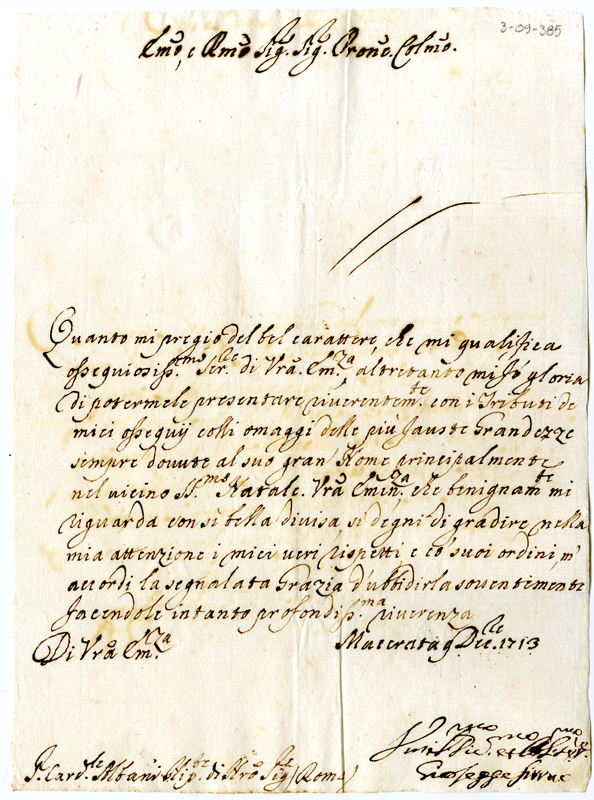 3-09-385
Emo, e Rmo Sig. Sig. Prone. Colmo.
Quanto mi pregio del bel carattere, che mi qualifica
ossequiosiss.mo Ser.re di Vra. Em.za, altretanto mi fò gloria
di potermele presentare riverentem.te con i Tributi de
miei ossequij colli omaggi delle più fauste Grandezze
sempre dovute al suo gran Nome principalmente
nel vicino SS.mo Natale. Vra Emin.za che benignam.te mi
riguarda con sì bella divisa, si degni di gradire nella
mia attenzione i miei veri rispetti e cò suoi ordini, m'
accordi la segnalata Grazia d'ubbidirla soventemente
facendole intanto profondiss.ma riverenza
Di Vra Em.za Macerata 9 Dec.re 1713
S. Card.le Albani Nip.te di Nro Sig.re (Roma)
Giuseppe